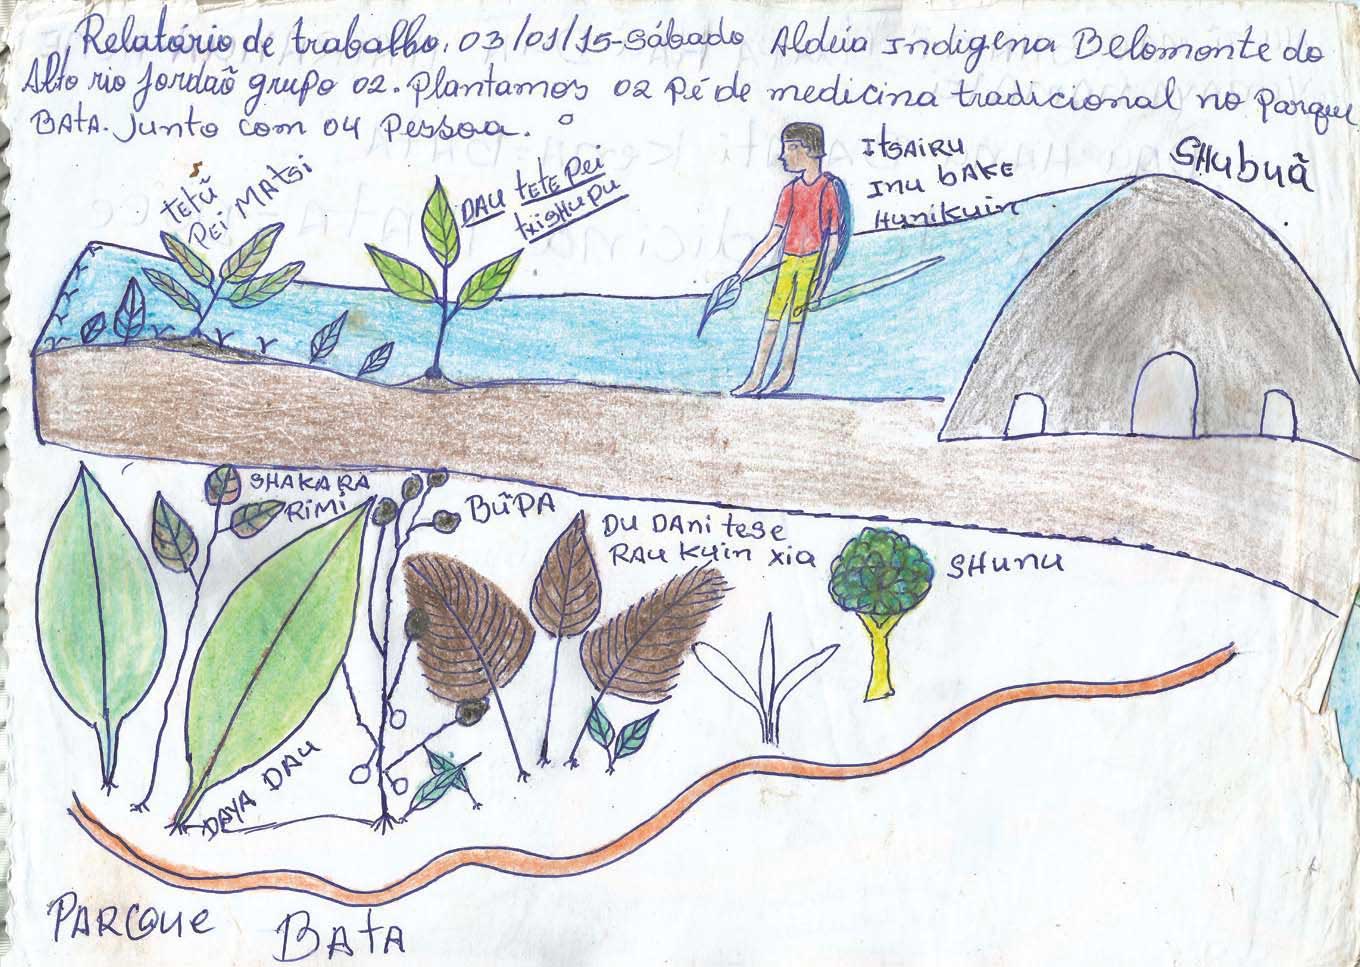 Relatário de trabalho. 03/01/15-sábado Aldeia Indigena Belomonte do
Alto rio Jordaõ grupo 02. Plantamos 02 Pé de medicina tradicional no Parque
BATA. Junto com 04 Pessoa.
TETŨ
PEI MATSI
DAU TETE Pei
txiSHUPU
ITSAIRU
INU bAKE
HUNIKUIN
SHubuã
SHAKARA
RIMI
BŨPA
DU DANi tese
RAU Kuin xia
SHUNU
DAYA DAU
PARQUE
BATA